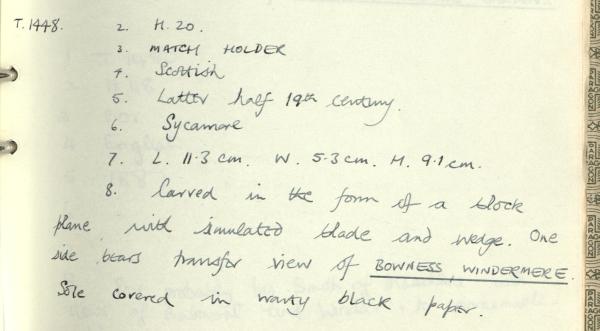 T.1448. 2. H. 20.
3. MATCH HOLDER
4. Scottish
5. Latter half 19th century.
6. Sycamore
7. L. 11.3 cm. W. 5.3 cm. H. 9.1 cm.
8. Carved in the form of a block
plane with simulated blade and wedge. One
side bears transfer view of BOWNESS WINDERMERE.
Sole covered in warty black paper.